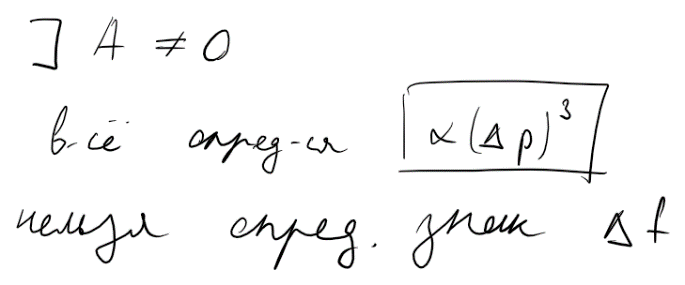 ] A ≠ 0
в-сё опред-ся α(Δρ)³
нельзя опред. знак Δf